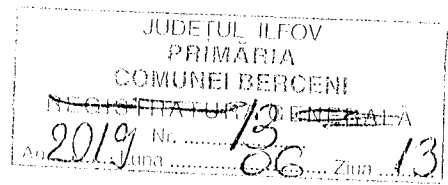 JUDEȚUL ILFOV
PRIMĂRIA
COMUNEI BERCENI
REGISTRATURA GENERALĂ
Nr. ........ 13
An 2019 Luna ........... 06 .... Ziua .. 13